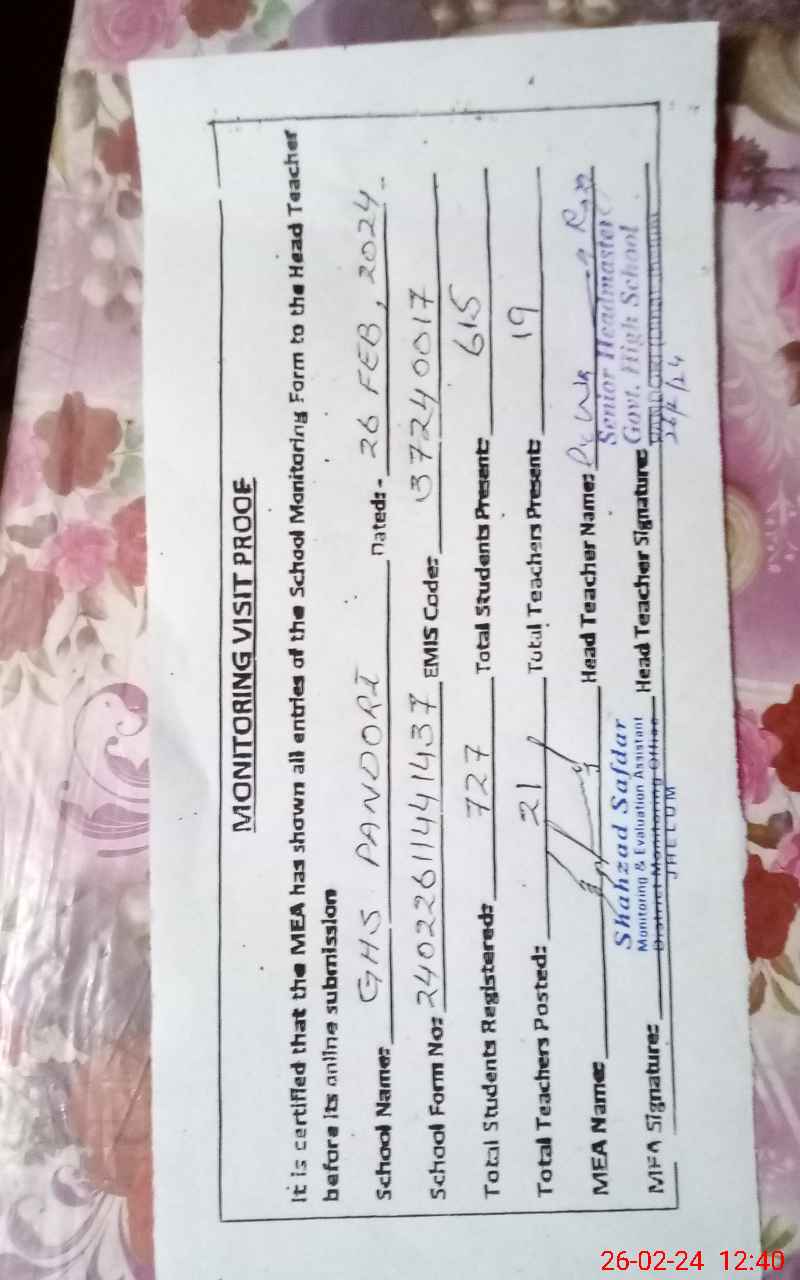 MONITORING VISIT PROOF
It is certified that the MEA has shown all entries of the School Monitoring Form to the Head Teacher
before its online submission
School Name: GHS PANDORI Dated:- 26 FEB, 2024
School Form No: 2402261144 1437 EMIS Code: 37240017
Total Students Registered: 727 Total Students Present: 615
Total Teachers Posted: 21 Total Teachers Present: 19
MEA Name: Head Teacher Name:
Shahzad Safdar
Monitoring & Evaluation Assistant
District Monitoring Office
JHELUM
Senior Headmaster
Govt. High School
MEA Signature: Head Teacher Signature:
26/2/24
26-02-24 12:40